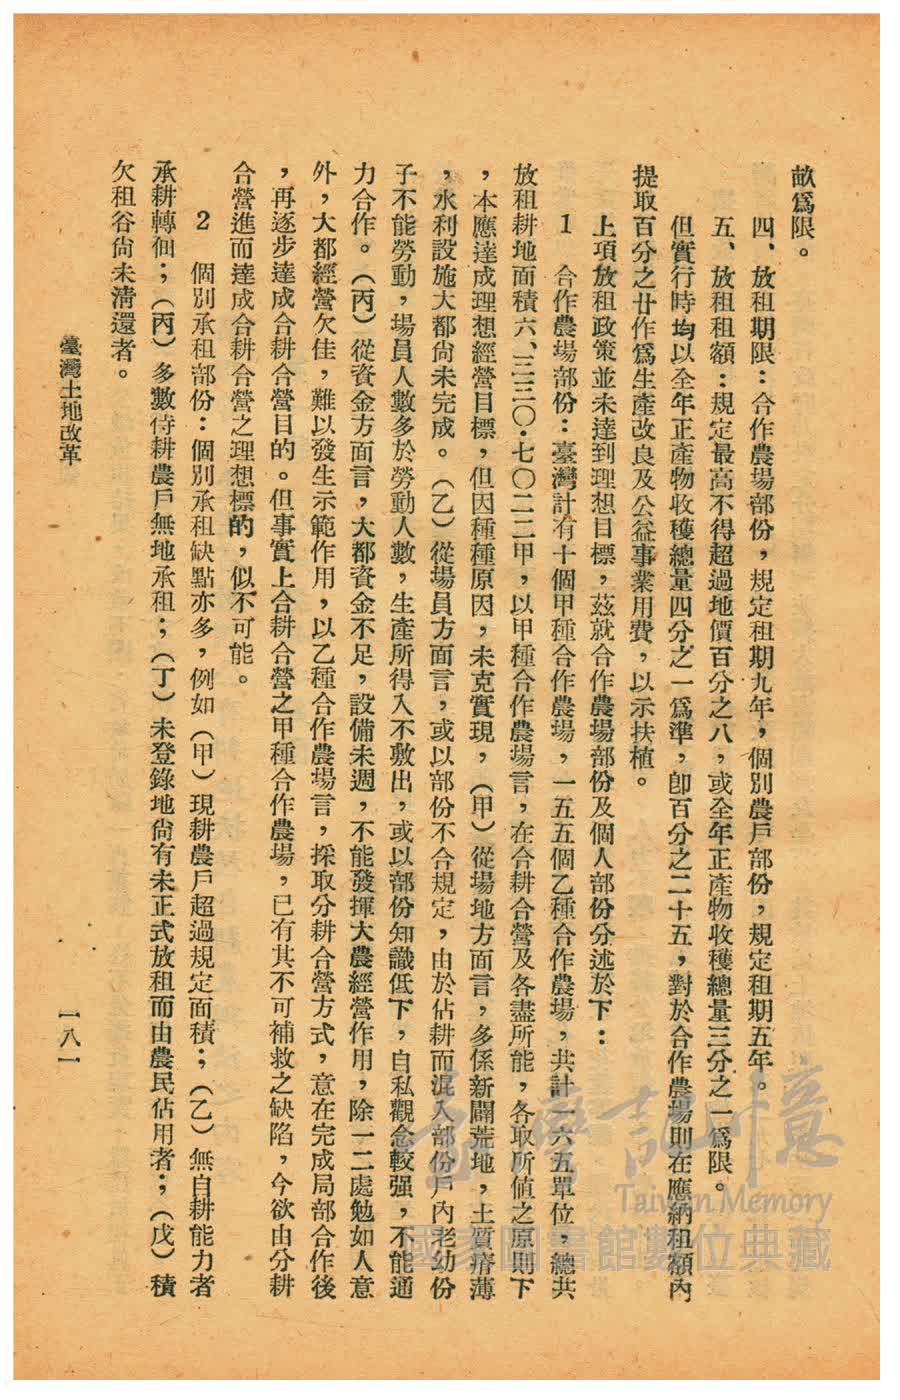 畝爲限。
四、放租期限：合作農場部份，規定租期九年，個別農戶部份，規定租期五年。
五、放租租額：規定最高不得超過地價百分之八，或全年正產物收穫總量三分之一爲限。
但實行時均以全年正產物收穫總量四分之一爲準，卽百分之二十五，對於合作農場則在應納租額內
提取百分之廿作爲生產改良及公益事業用費，以示扶植。
上項放租政策並未達到理想目標，茲就合作農場部份及個人部份分述於下：
1　合作農場部份：臺灣計有十個甲種合作農場，一五五個乙種合作農場，共計一六五單位，總共
放租耕地面積六、三三〇．七〇二二甲，以甲種合作農場言，在合耕合營及各盡所能，各取所値之原則下
，本應達成理想經營目標，但因種種原因，未克實現，（甲）從場地方面言，多係新闢荒地，土質瘠薄
，水利設施大都尙未完成。（乙）從場員方面言，或以部份不合規定，由於佔耕而混入部份戶內老幼份
子不能勞動，場員人數多於勞動人數，生產所得入不敷出，或以部份知識低下，自私觀念較强，不能通
力合作。（丙）從資金方面言，大都資金不足，設備未週，不能發揮大農經營作用，除一二處勉如人意
外，大都經營欠佳，難以發生示範作用，以乙種合作農場言，採取分耕合營方式，意在完成局部合作後
，再逐步達成合耕合營目的。但事實上合耕合營之甲種合作農場，已有其不可補救之缺陷，今欲由分耕
合營進而達成合耕合營之理想標的，似不可能。
2　個別承租部份：個別承租缺點亦多，例如（甲）現耕農戶超過規定面積；（乙）無自耕能力者
承耕轉佃；（丙）多數待耕農戶無地承租；（丁）未登錄地尙有未正式放租而由農民佔用者；（戊）積
欠租谷尙未淸還者。
臺灣土地改革
一八一
臺灣記憶
Taiwan Memory
國家圖書館數位典藏